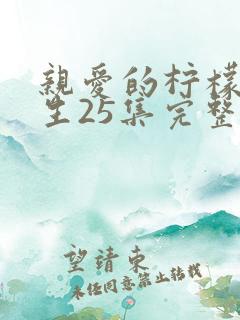 親愛的柠檬
生25集完整
望靖東
未经同意禁止转载